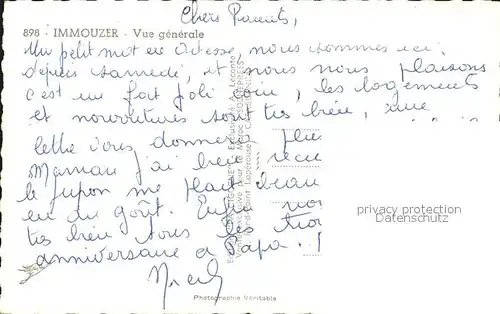 Chers Parents,
898 - IMMOUZER - Vue générale
Un petit mot en vitesse, nous sommes ici
depuis samedi, et nous nous plaisons
c'est un fort joli coin, les logements
et nourritures sont très bien, une
lettre vous donnera plus
Maman j'ai bien reçu
le jupon me plait beau
eu du goût. Enfin
très bien tous les trois
anniversaire a Papa.
privacy protection
Datenschutz
Photographie Véritable